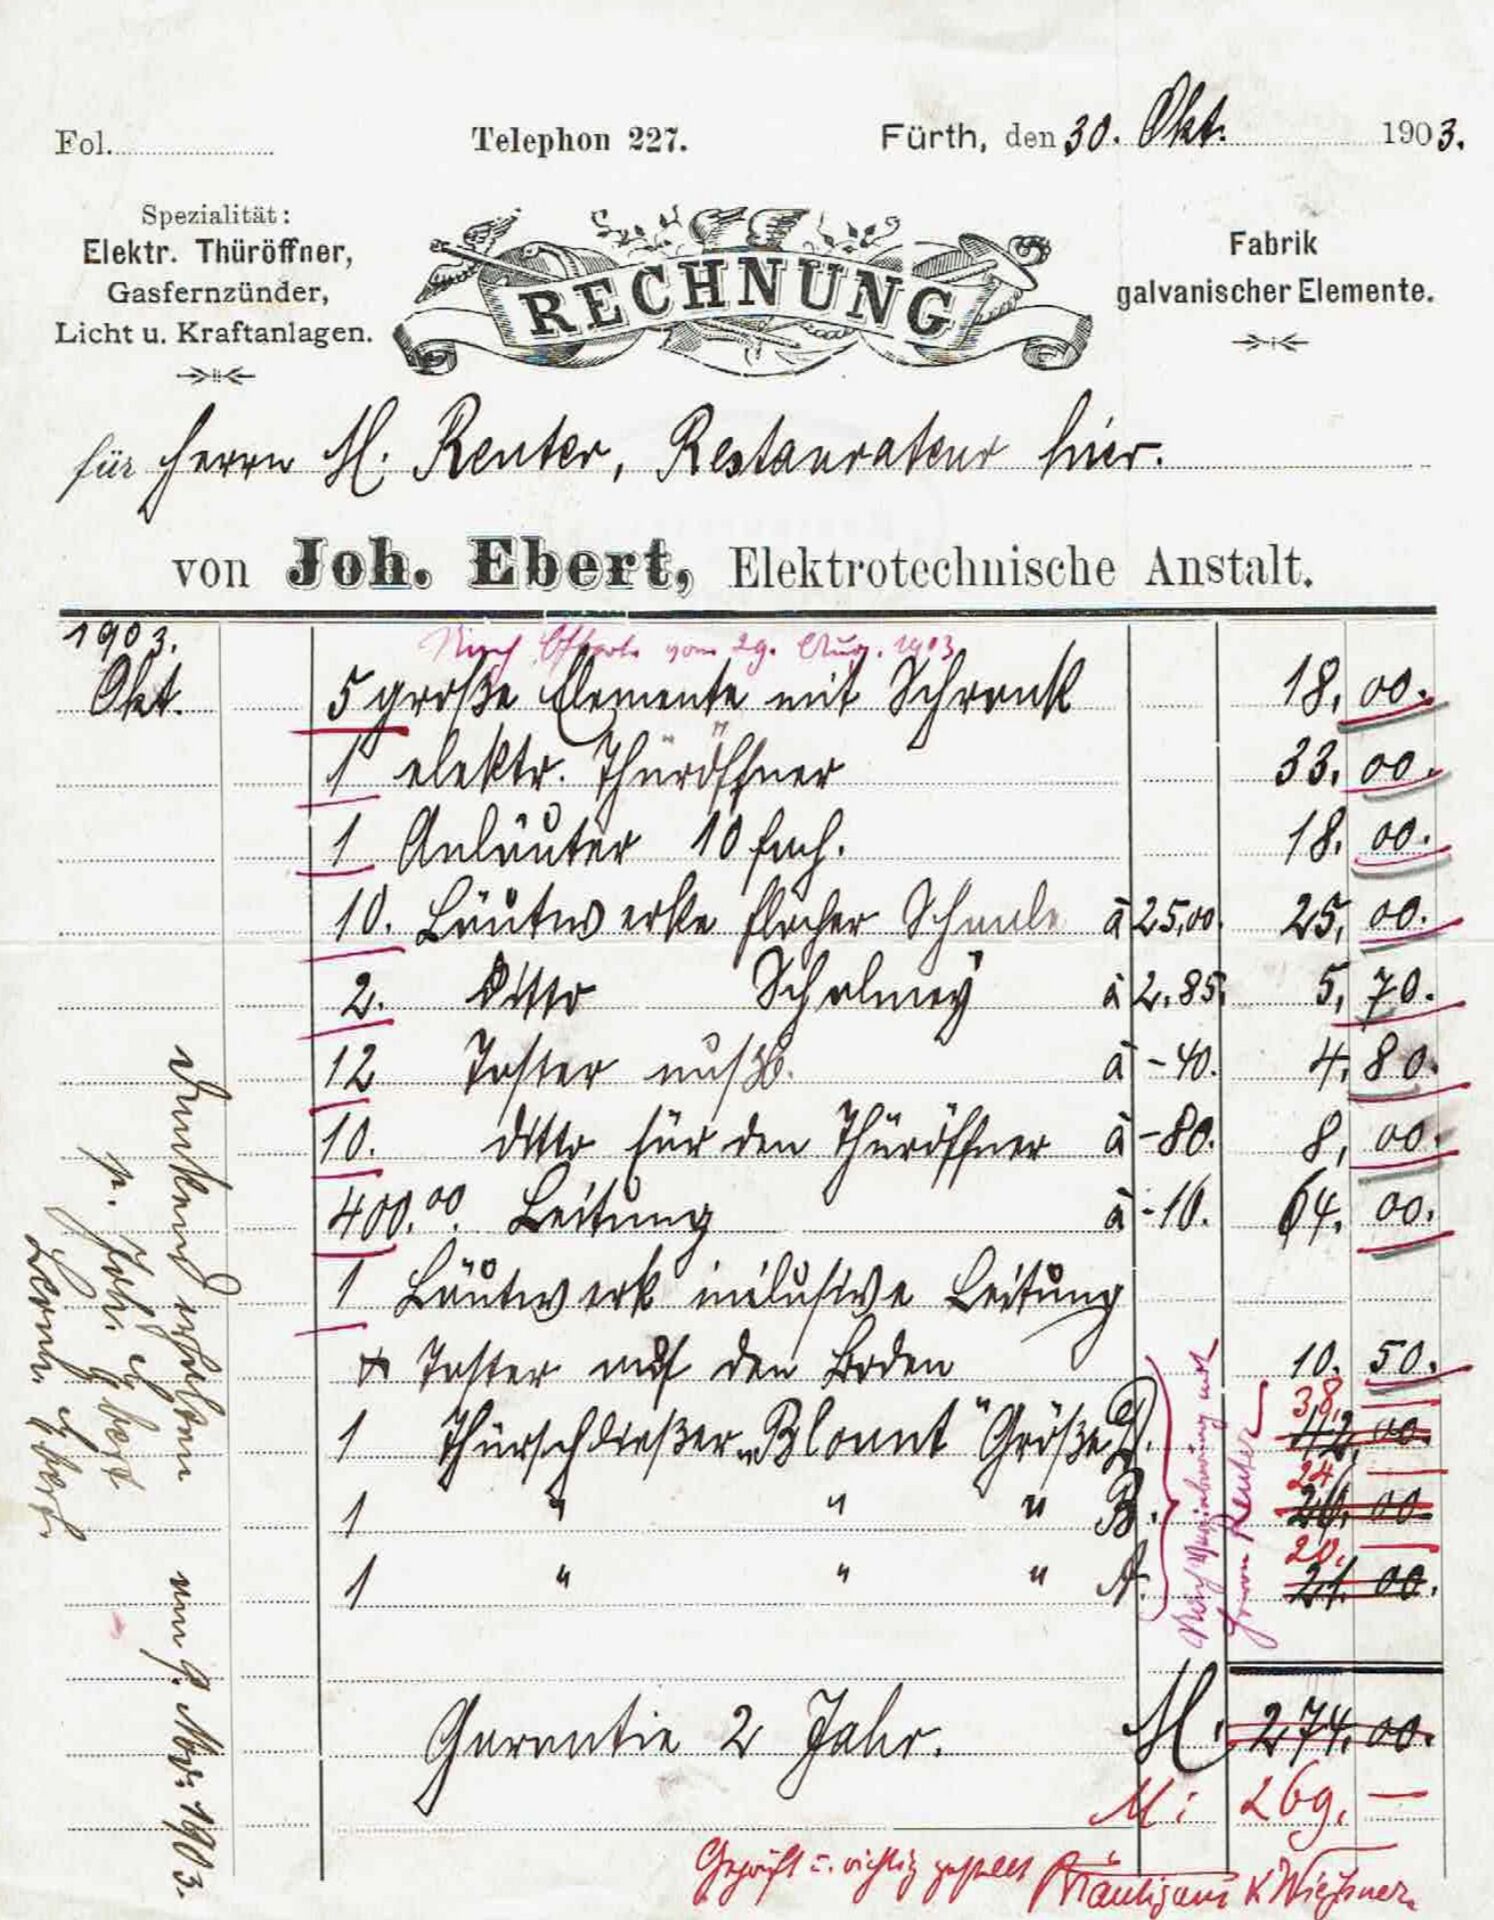 Fol.
Telephon 227.
Fürth, den 30. Okt. 1903.
Spezialität:
Elektr. Thüröffner,
Gasfernzünder,
Licht u. Kraftanlagen.
RECHNUNG
Fabrik
galvanischer Elemente.
für Herrn M. Reuter, Restaurateur hier.
von Joh. Ebert, Elektrotechnische Anstalt.
1903.
Nach Offerte vom 29. Aug. 1903
Okt. 5 große Elemente mit Schrank 18,00.
1 elektr. Thüröffner 33,00.
1 Anläuter 10 fach. 18.00.
10. Läutwerke flacher Schaale à 25,00. 25,00.
2. ditto Schalmey à 2.85. 5,70.
12 Taster nußb. à -40. 4,80.
10. ditto für den Thüröffner à -80. 8,00.
400.00. Leitung à -16. 64.00.
1 Läutwerk inclusive Leitung
& Taster auf den Boden 10.50.
1 Thürschließer "Blount" Größe D. 42,00.
38,—
1 " " " B. 26,00.
24—
1 " " " A. 21.00.
20.—
Nach Vereinbarung mit
Herrn Reuter
Garantie 2 Jahr. M. 274.00.
M: 269.—
Geprüft u. richtig gestellt Bräutigam K Wießner
Dankend erhalten
p. Joh. Ebert
Ebert.
am 9. Nov. 1903.